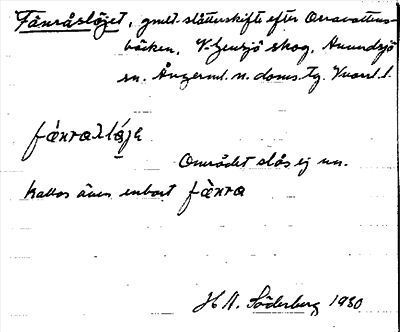 Fänråslöjet, gmlt. slåtterskifte efter Orravattens-
bäcken, V. Gensjö skog, Anundsjö
sn. Ångerml. n. doms. tg. Vnorrl. l.
Området slås ej nu.
Kallas även enbart fànra
H A. Söderberg 1930